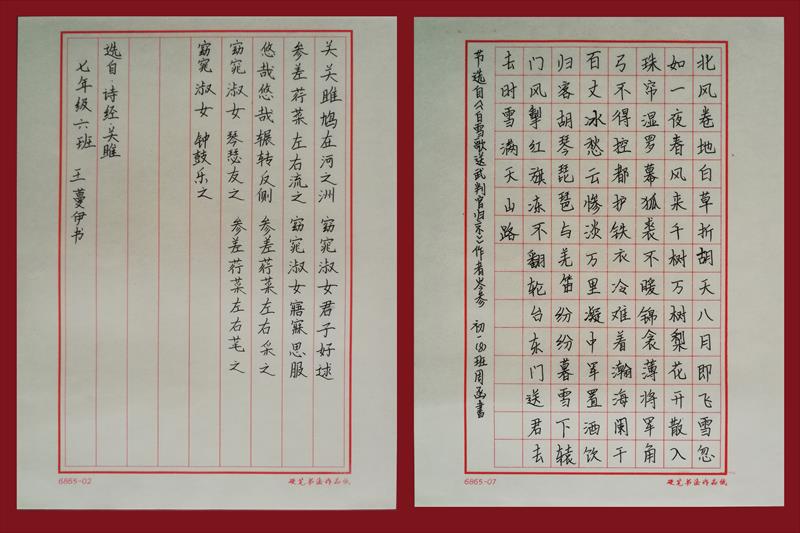 关关雎鸠在河之洲 窈窕淑女君子好逑
参差荇菜左右流之 窈窕淑女寤寐思服
悠哉悠哉辗转反侧 参差荇菜左右采之
窈窕淑女琴瑟友之 参差荇菜左右芼之
窈窕淑女 钟鼓乐之
选自·诗经·关雎
七年级六班 王蔓伊书
6865-02
硬笔书法作品纸
北风卷地白草折胡天八月即飞雪忽
如一夜春风来千树万树梨花开散入
珠帘湿罗幕狐裘不暖锦衾薄将军角
弓不得控都护铁衣冷难着瀚海阑干
百丈冰愁云惨淡万里凝中军置酒饮
归客胡琴琵琶与羌笛纷纷暮雪下辕
门风掣红旗冻不翻轮台东门送君去
去时雪满天山路
节选自《白雪歌送武判官归京》作者岑参 初一 班周函书
6865-07
硬笔书法作品纸